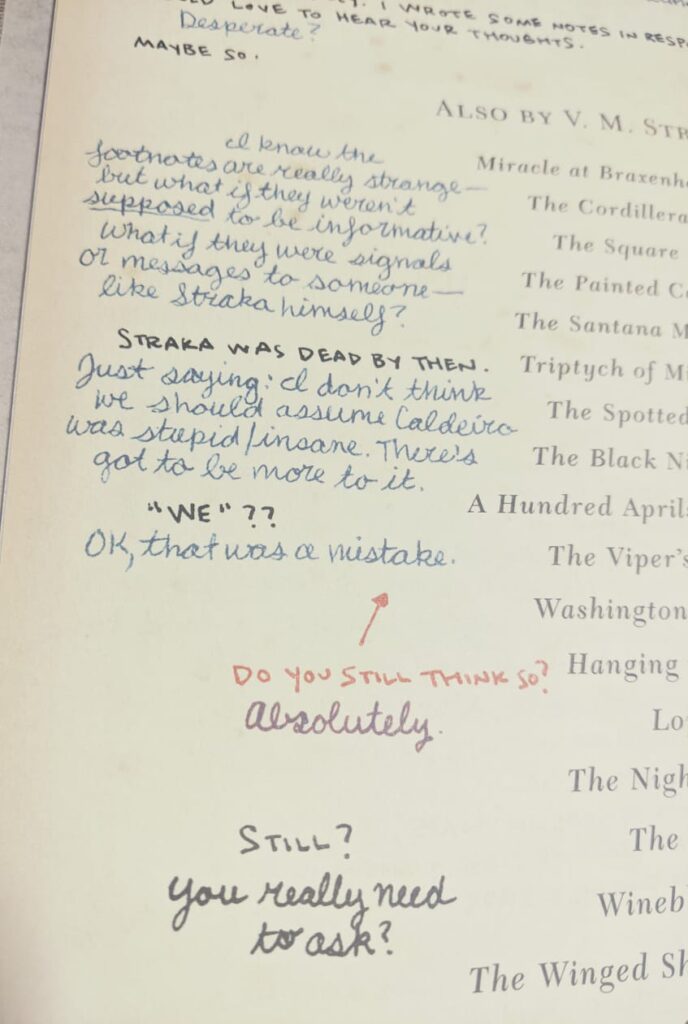 LOVE TO HEAR YOUR THOUGHTS. I WROTE SOME NOTES IN
Desperate?
MAYBE SO.
ALSO BY V. M.
I know the
footnotes are really strange—
but what if they weren't
supposed to be informative?
What if they were signals
or messages to someone—
like Straka himself?
STRAKA WAS DEAD BY THEN.
Just saying: I don't think
we should assume Caldeira
was stupid/insane. There's
got to be more to it.
"WE"??
OK, that was a mistake.
DO YOU STILL THINK SO?
Absolutely.
STILL?
You really need
to ask?
Miracle at
The Cordillera
The Square
The Painted
The Santana
Triptych of
The Spotted
The Black
A Hundred
The Viper's
Washington
Hanging
The
The
The Winged